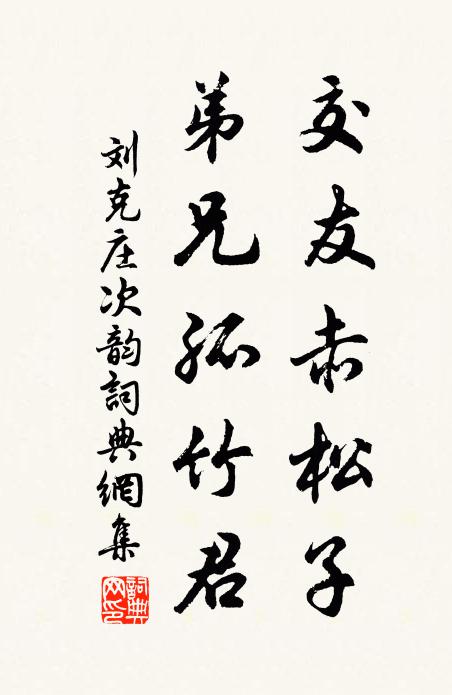 交友赤松子
弟兄孤竹君
刘克庄次韵詞典網集
詞典网印